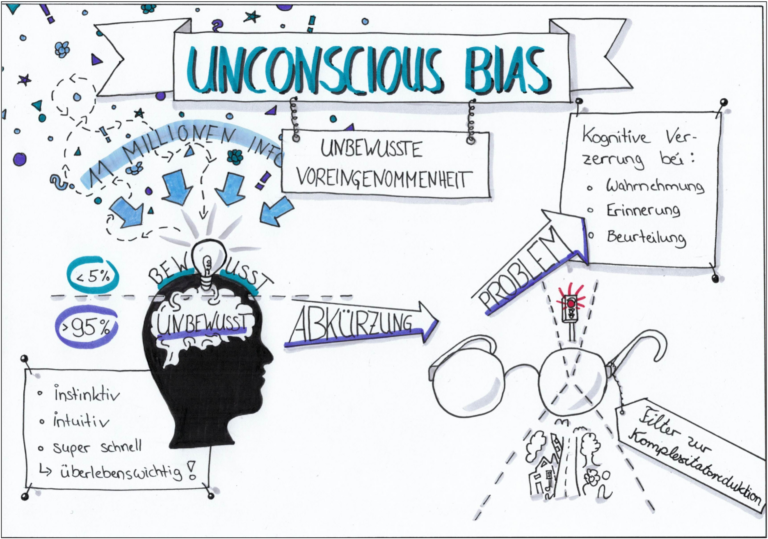 UNCONSCIOUS BIAS
UNBEWUSSTE
VOREINGENOMMENHEIT
11 MILLIONEN INFO
Kognitive Ver-
zerrung bei:
Wahrnehmung
Erinnerung
Beurteilung
PROBLEM
<5%
BEWUSST
>95%
UNBEWUSST
ABKÜRZUNG
instinktiv
intuitiv
super schnell
↳ überlebenswichtig!
Filter zur
Komplexitätsreduktion